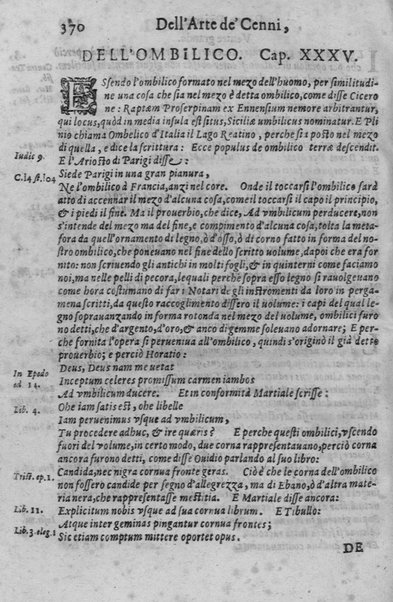 370 Dell'Arte de' Cenni,
DELL'OMBILICO. Cap. XXXV.
ESsendo l'ombilico formato nel mezo dell'huomo, per similitudi-
ne una cosa che sia nel mezo è detta ombilico, come disse Cicero
ne: Raptam Proserpinam ex Ennensium nemore arbitrantur,
qui locus, quòd in media insula est situs, Siciliæ umbilicus nominatur. E Pli
nio chiama Ombelico d'Italia il Lago Reatino, perche sia posto nel mezo
Iudic 9. di quella, e dice la scrittura: Ecce populus de ombilico terræ descendit.
E l'Ariosto di Parigi disse:
C. 14 st. 104 Siede Parigi in una gran pianura,
Ne l'ombilico à Francia, anzi nel core. Onde il toccarsi l'ombilico sarà
atto di accennar il mezo d'alcuna cosa, come il toccarsi il capo il principio,
& i piedi il fine. Ma il prouerbio, che dice, Ad vmbilicum perducere, non
s'intende del mezo ma del fine, e compimento d'alcuna cosa, tolta la meta-
fora da quell'ornamento di legno, ò d'osso, ò di corno fatto in forma del no-
stro ombilico, che poneuasi nel fine dello scritto volume, dapoi che era for
nito: non scriuendo gli antichi in molti fogli, & in quinterni come faciamo
noi, ma nelle pelli di pecora, lequali perche sopra esso legno si rauolgeano
come hora costumano di far i Notari de gli instromenti da loro in perga-
mena scritti, da questo raccoglimento dissero il uolume: i capi del qual le-
gno soprauanzando in forma rotonda nel mezo del volume, ombilici furo
no detti, che d'argento, d'oro, & anco di gemme soleuano adornare; E per-
che fornita l'opera si peruenina all'ombilico, quindi s'originò il già detto
prouerbio; e perciò Horatio:
Deus, Deus nam me uetat
In Epodo od 14. Inceptum celeres promissum carmen iambos
Ad vmbilicum ducere. Et in conformità Martiale scrisse:
Lib. 4. Ohe iam satis est, ohe libelle
Iam peruenimus vsque ad vmbilicum,
Tu procedere adhuc, & ire quæris? E perche questi ombilici, vscendo
fuori del volume, in certo modo, due corna rappresentauano, perciò corna
ancora furono detti, come disse Ouidio parlando al suo libro:
Trist. ep. 1. Candida, nec nigra cornua fronte geras. Ciò è che le corna dell'ombilico
non fossero candide per segno d'allegrezza, ma di Ebano, ò d'altra mate-
ria nera, che rappresentasse mestitia. E Martiale disse ancora:
Lib. 11. Explicitum nobis vsque ad sua cornua librum. E Tibullo:
Lib. 3. eleg. 1 Atque inter geminas pingantur cornua frontes;
Sic etiam comptum mittere oportet opus.
DE